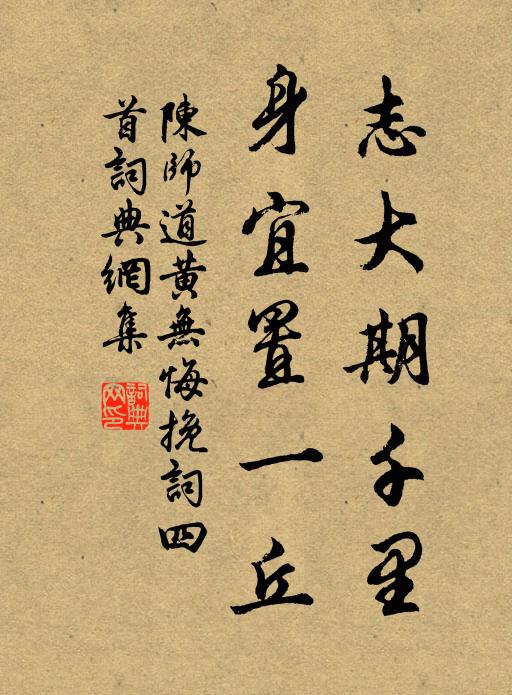 志大期千里
身宜置一丘
陳師道黃無悔挽詞四
首詞典網集
詞典网印